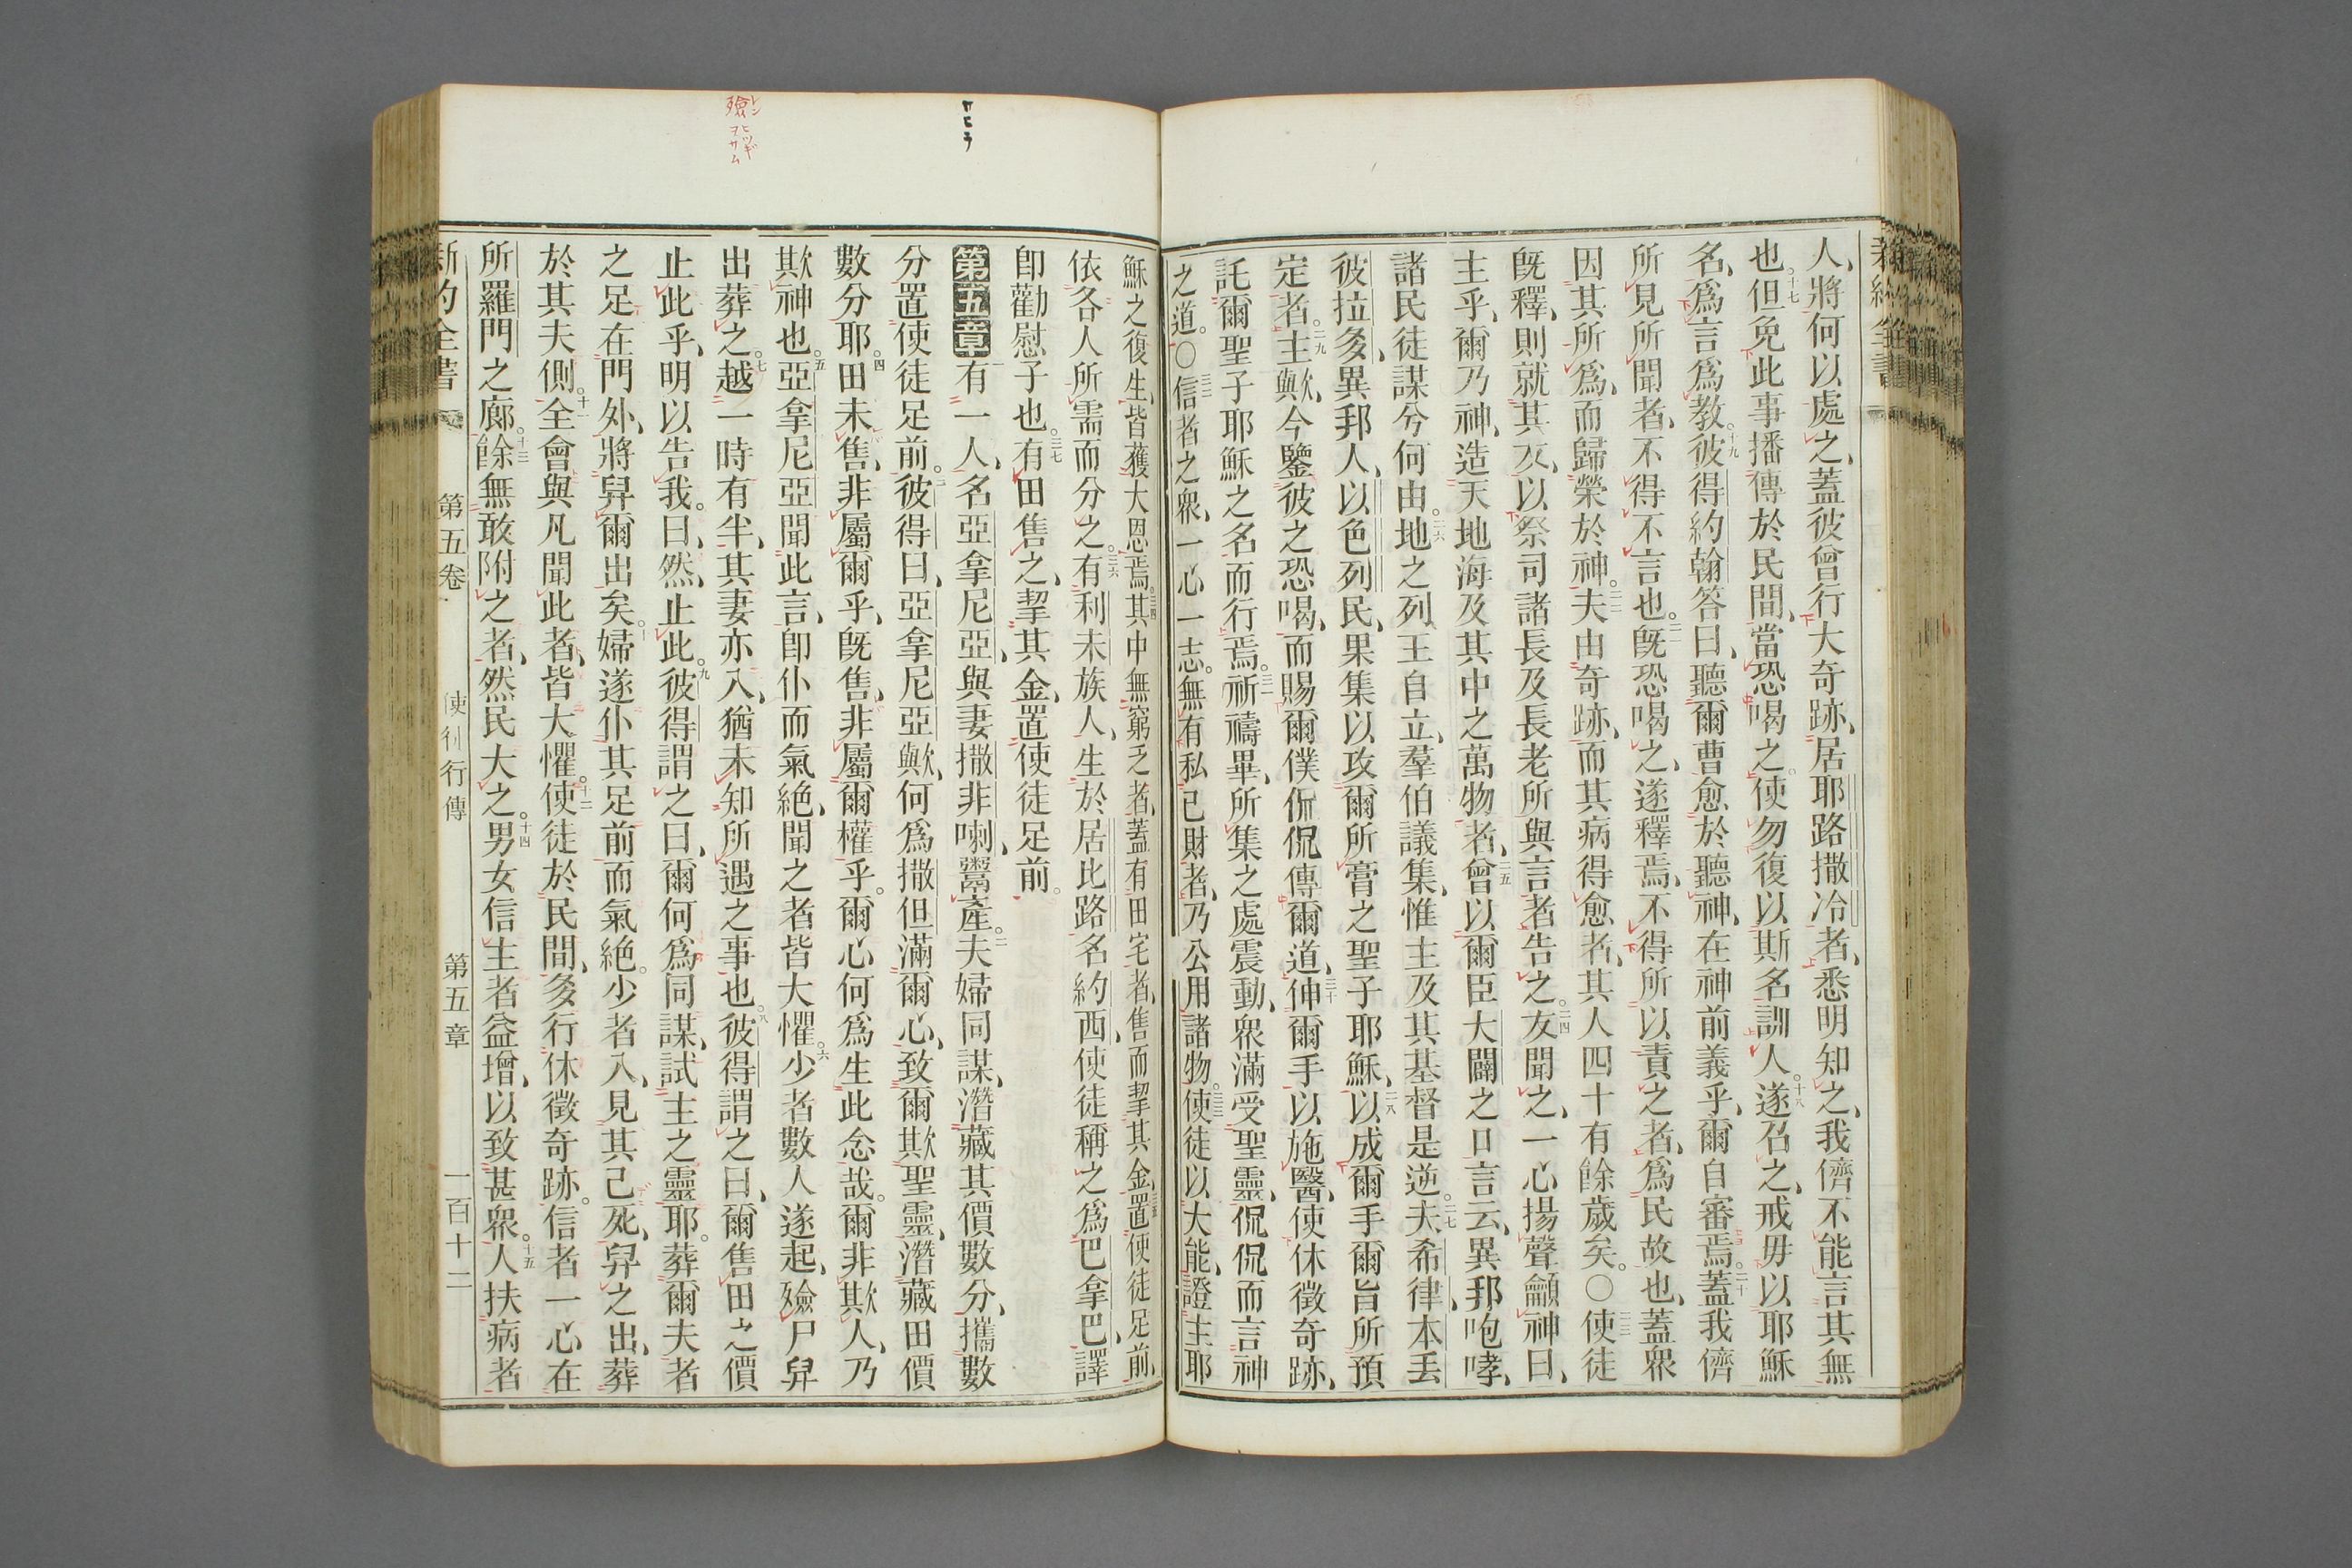 人、將何以處之、蓋彼曾行大奇跡、居耶路撒冷者、悉明知之、我儕不能言其無
也。十七但免此事播傳於民間、當恐喝之。使勿復以斯名訓人。十八遂召之、戒毋以耶穌
名、爲言爲教。十九彼得約翰答曰、聽爾曹愈於聽神、在神前義乎、爾自審焉。二十蓋我儕
所見所聞者、不得不言也。二一旣恐喝之、遂釋焉、不得所以責之者、爲民故也、蓋衆
因其所爲、而歸榮於神。二二夫由奇跡、而其病得愈者、其人四十有餘歲矣。○二三使徒
旣釋、則就其友、以祭司諸長及長老所與言者告之。二四友聞之、一心揚聲籲神曰、
主乎、爾乃神、造天地海及其中之萬物者、二五曾以爾臣大闢之口言云、異邦咆哮、
諸民徒謀兮何由。二六地之列王自立、羣伯議集、惟主及其基督是逆。二七夫希律、本丢
彼拉多、異邦人、以色列民、果集以攻爾所膏之聖子耶穌、二八以成爾手爾旨所預
定者。二九主歟、今鑒彼之恐喝、而賜爾僕侃侃傳爾道、三十伸爾手以施醫、使休徵奇跡、
託爾聖子耶穌之名而行焉。三一祈禱畢、所集之處震動、衆滿受聖靈、侃侃而言神
之道。○三二信者之衆、一心一志。無有私己財者、乃公用諸物。三三使徒以大能、證主耶
穌之復生、皆獲大恩焉。三四其中無窮乏者、蓋有田宅者、售而挈其金、三五置使徒足前、
依各人所需而分之。三六有利未族人、生於居比路名約西、使徒稱之爲巴拿巴、譯
卽勸慰子也。三七有田售之、挈其金、置使徒足前。
第五章 一有一人、名亞拿尼亞、與妻撒非喇、鬻產。二夫婦同謀、潛藏其價數分、攜數
分置使徒足前。三彼得曰、亞拿尼亞歟、何爲撒但滿爾心、致爾欺聖靈、潛藏田價
數分耶。四田未售、非屬爾乎、旣售、非屬爾權乎。爾心何爲生此念哉。爾非欺人、乃
欺神也。五亞拿尼亞聞此言、卽仆而氣絶、聞之者皆大懼。六少者數人遂起、殮尸舁
出葬之。七越一時有半、其妻亦入、猶未知所遇之事也。八彼得謂之曰、爾售田之價
止此乎、明以告我。曰、然、止此。九彼得謂之曰、爾何爲同謀、試主之靈耶。葬爾夫者
之足在門外、將舁爾出矣。十婦遂仆其足前而氣絶。少者入、見其已死、舁之出、葬
於其夫側。十一全會與凡聞此者、皆大懼。十二使徒於民間、多行休徵奇跡。信者一心在
所羅門之廊。十三餘無敢附之者、然民大之。十四男女信主者益增、以致甚衆。十五人扶病者
新約全書 第五卷 使徒行傳 第五章 一百十二
殮 レン ヒツギ ヲサム